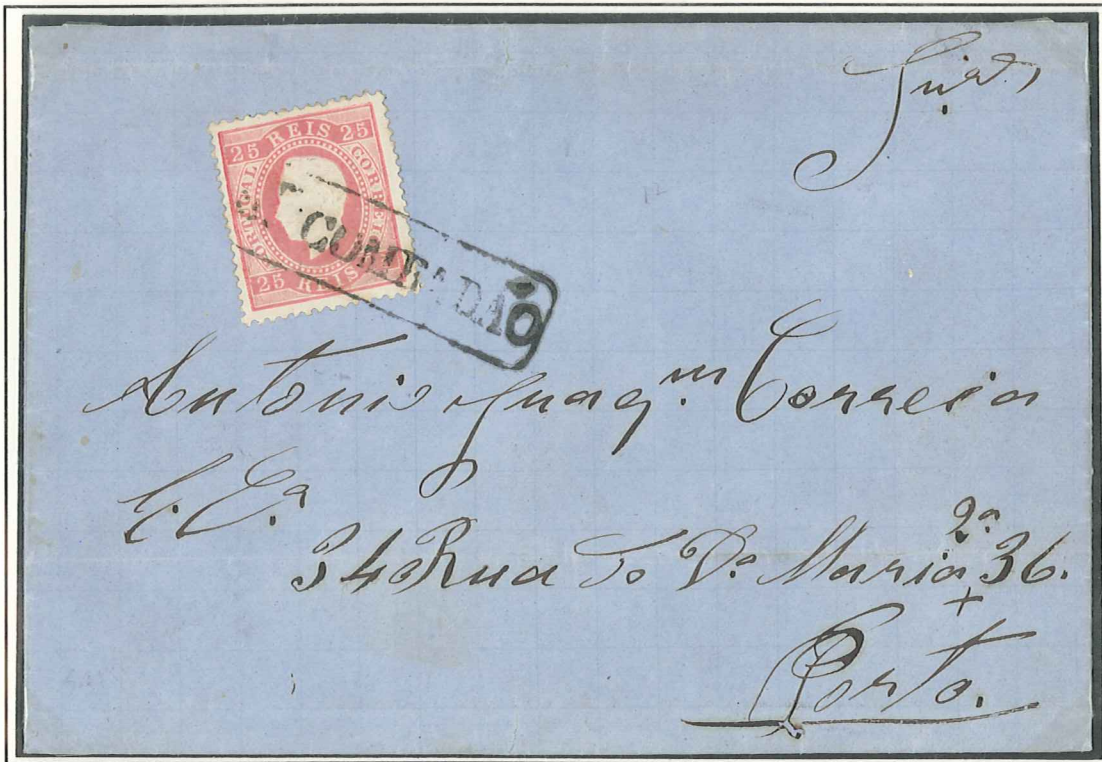 25 REIS 25
PORTUGAL CORREIO
25 REIS
COMBADAÕ
Antonio Juaq.m Correia
& C.a
34 Rua de D.a Maria 2.a 36.
Porto.